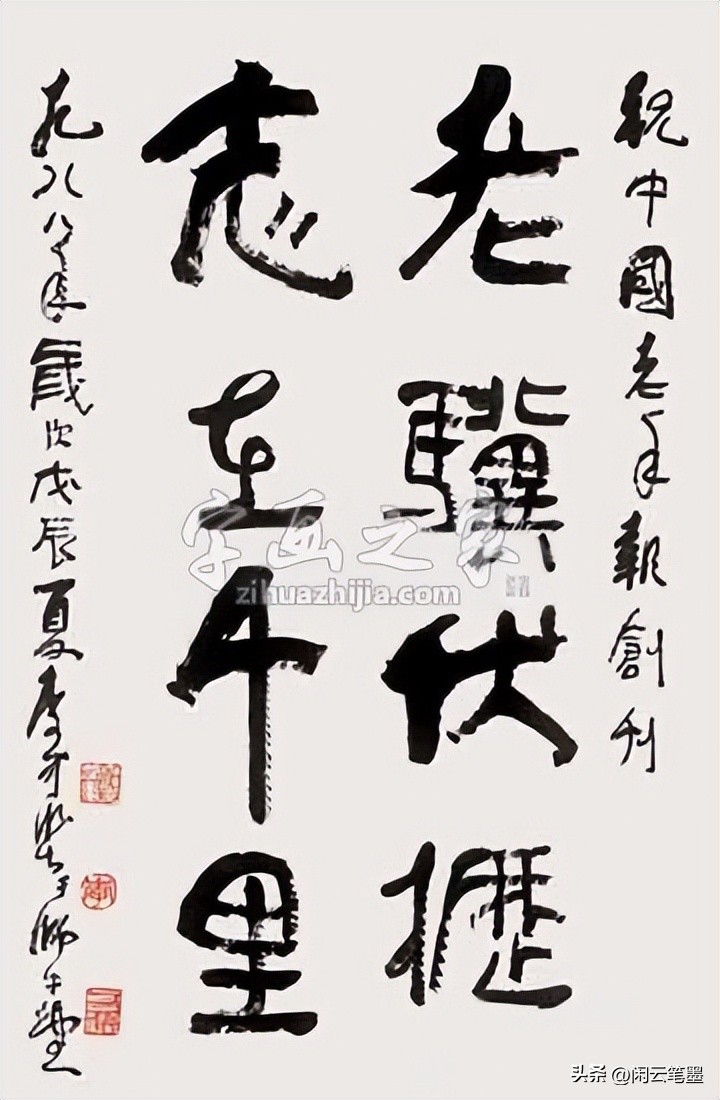 祝中國老年報創刊
老驥伏櫪
志在千里
一九八八年歲次戊辰夏李可染書于師牛堂
字画之家
zihuazhijia.com
头条 @闲云笔墨